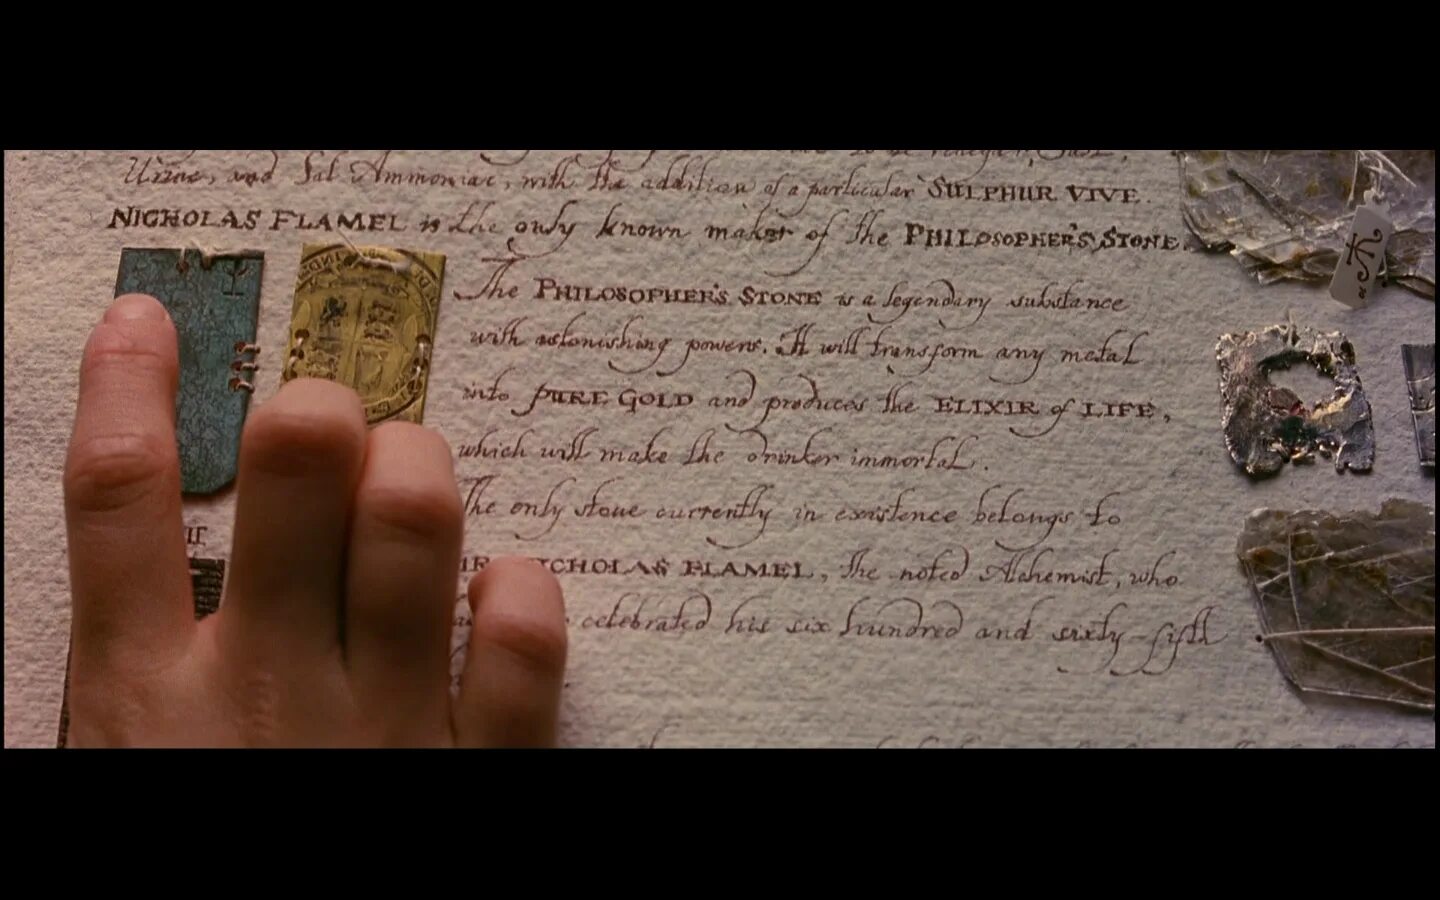 Urine, and Sal Ammoniac, with the addition of a particular SULPHUR VIVE.
NICHOLAS FLAMEL is the only known maker of the PHILOSOPHER'S STONE.
The PHILOSOPHER'S STONE is a legendary substance
with astonishing powers. It will transform any metal
into PURE GOLD and produces the ELIXIR of LIFE,
which will make the drinker immortal.
The only stone currently in existence belongs to
NICHOLAS FLAMEL, the noted Alchemist, who
celebrated his six hundred and sixty-fifth